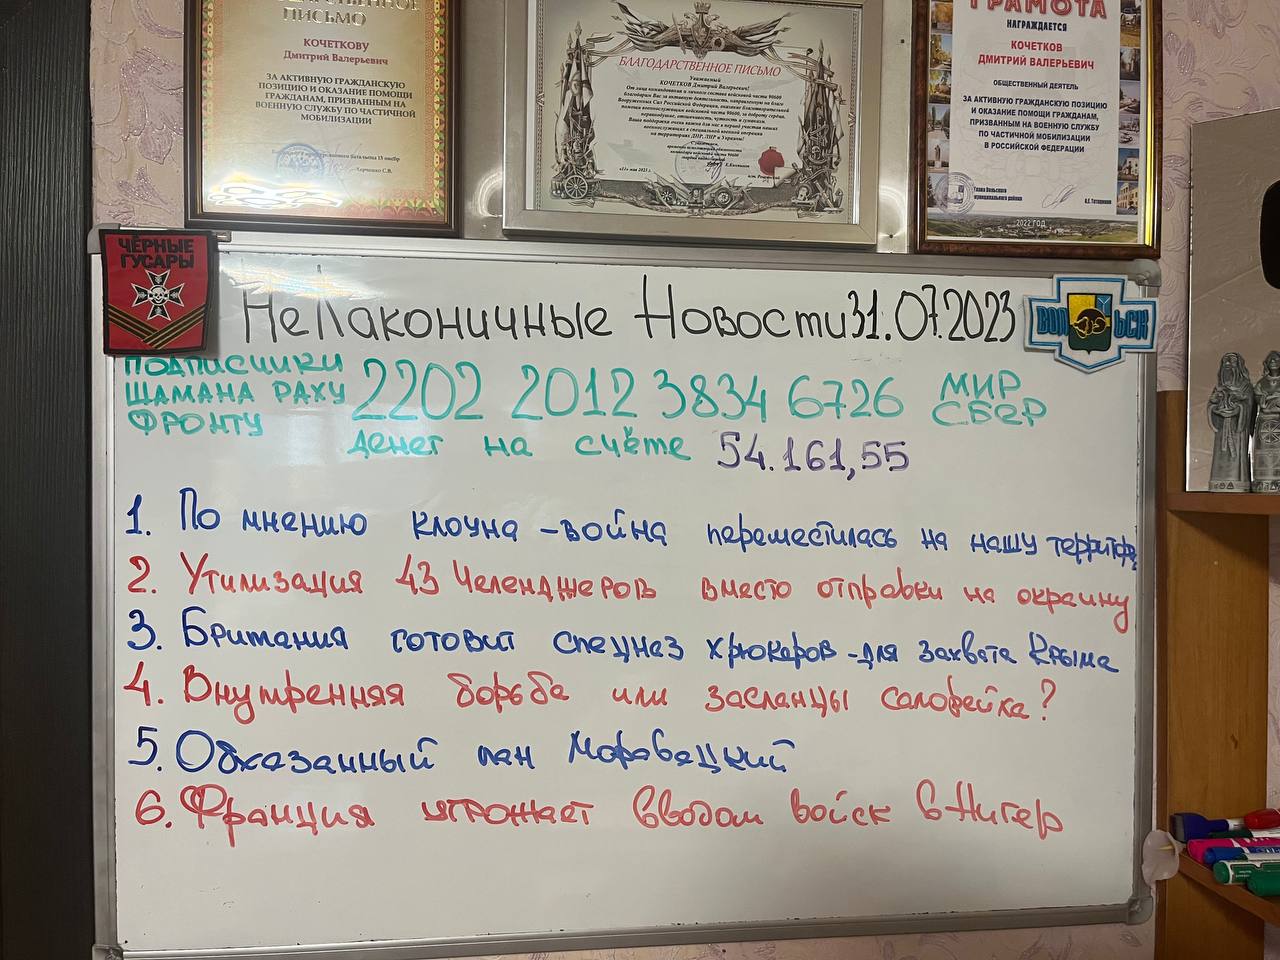 ПИСЬМО
КОЧЕТКОВУ
Дмитрий Валерьевич
ЗА АКТИВНУЮ ГРАЖДАНСКУЮ
ПОЗИЦИЮ И ОКАЗАНИЕ ПОМОЩИ
ГРАЖДАНАМ, ПРИЗВАННЫМ НА
ВОЕННУЮ СЛУЖБУ ПО ЧАСТИЧНОЙ
МОБИЛИЗАЦИИ
БЛАГОДАРСТВЕННОЕ ПИСЬМО
Уважаемый
КОЧЕТКОВ Дмитрий Валерьевич!
От лица командования и личного состава войсковой части 90600
на территориях ДНР, ЛНР и Украины!
ГРАМОТА
НАГРАЖДАЕТСЯ
КОЧЕТКОВ
ДМИТРИЙ ВАЛЕРЬЕВИЧ
ОБЩЕСТВЕННЫЙ ДЕЯТЕЛЬ
ЗА АКТИВНУЮ ГРАЖДАНСКУЮ ПОЗИЦИЮ
И ОКАЗАНИЕ ПОМОЩИ ГРАЖДАНАМ,
ПРИЗВАННЫМ НА ВОЕННУЮ СЛУЖБУ
ПО ЧАСТИЧНОЙ МОБИЛИЗАЦИИ
В РОССИЙСКОЙ ФЕДЕРАЦИИ
2022 ГОД
ЧЁРНЫЕ
ГУСАРЫ
НеЛаконичные Новости 31.07.2023
ВОЛЬСК
ПОДПИСЧИКИ
ШАМАНА РАХУ
ФРОНТУ
2202 2012 3834 6726 МИР
СБЕР
денег на счёте 54.161,55
1. По мнению клоуна - война переместилась на нашу
2. Утилизация 43 Челенджеров вместо отправки на окраину
3. Британия готовит спецназ хрюкеров - для захвата Крыма
4. Внутренняя борьба или засланцы салорейка?
5. Обхезанный пан Моравецкий
6. Франция угрожает вводом войск в Нигер